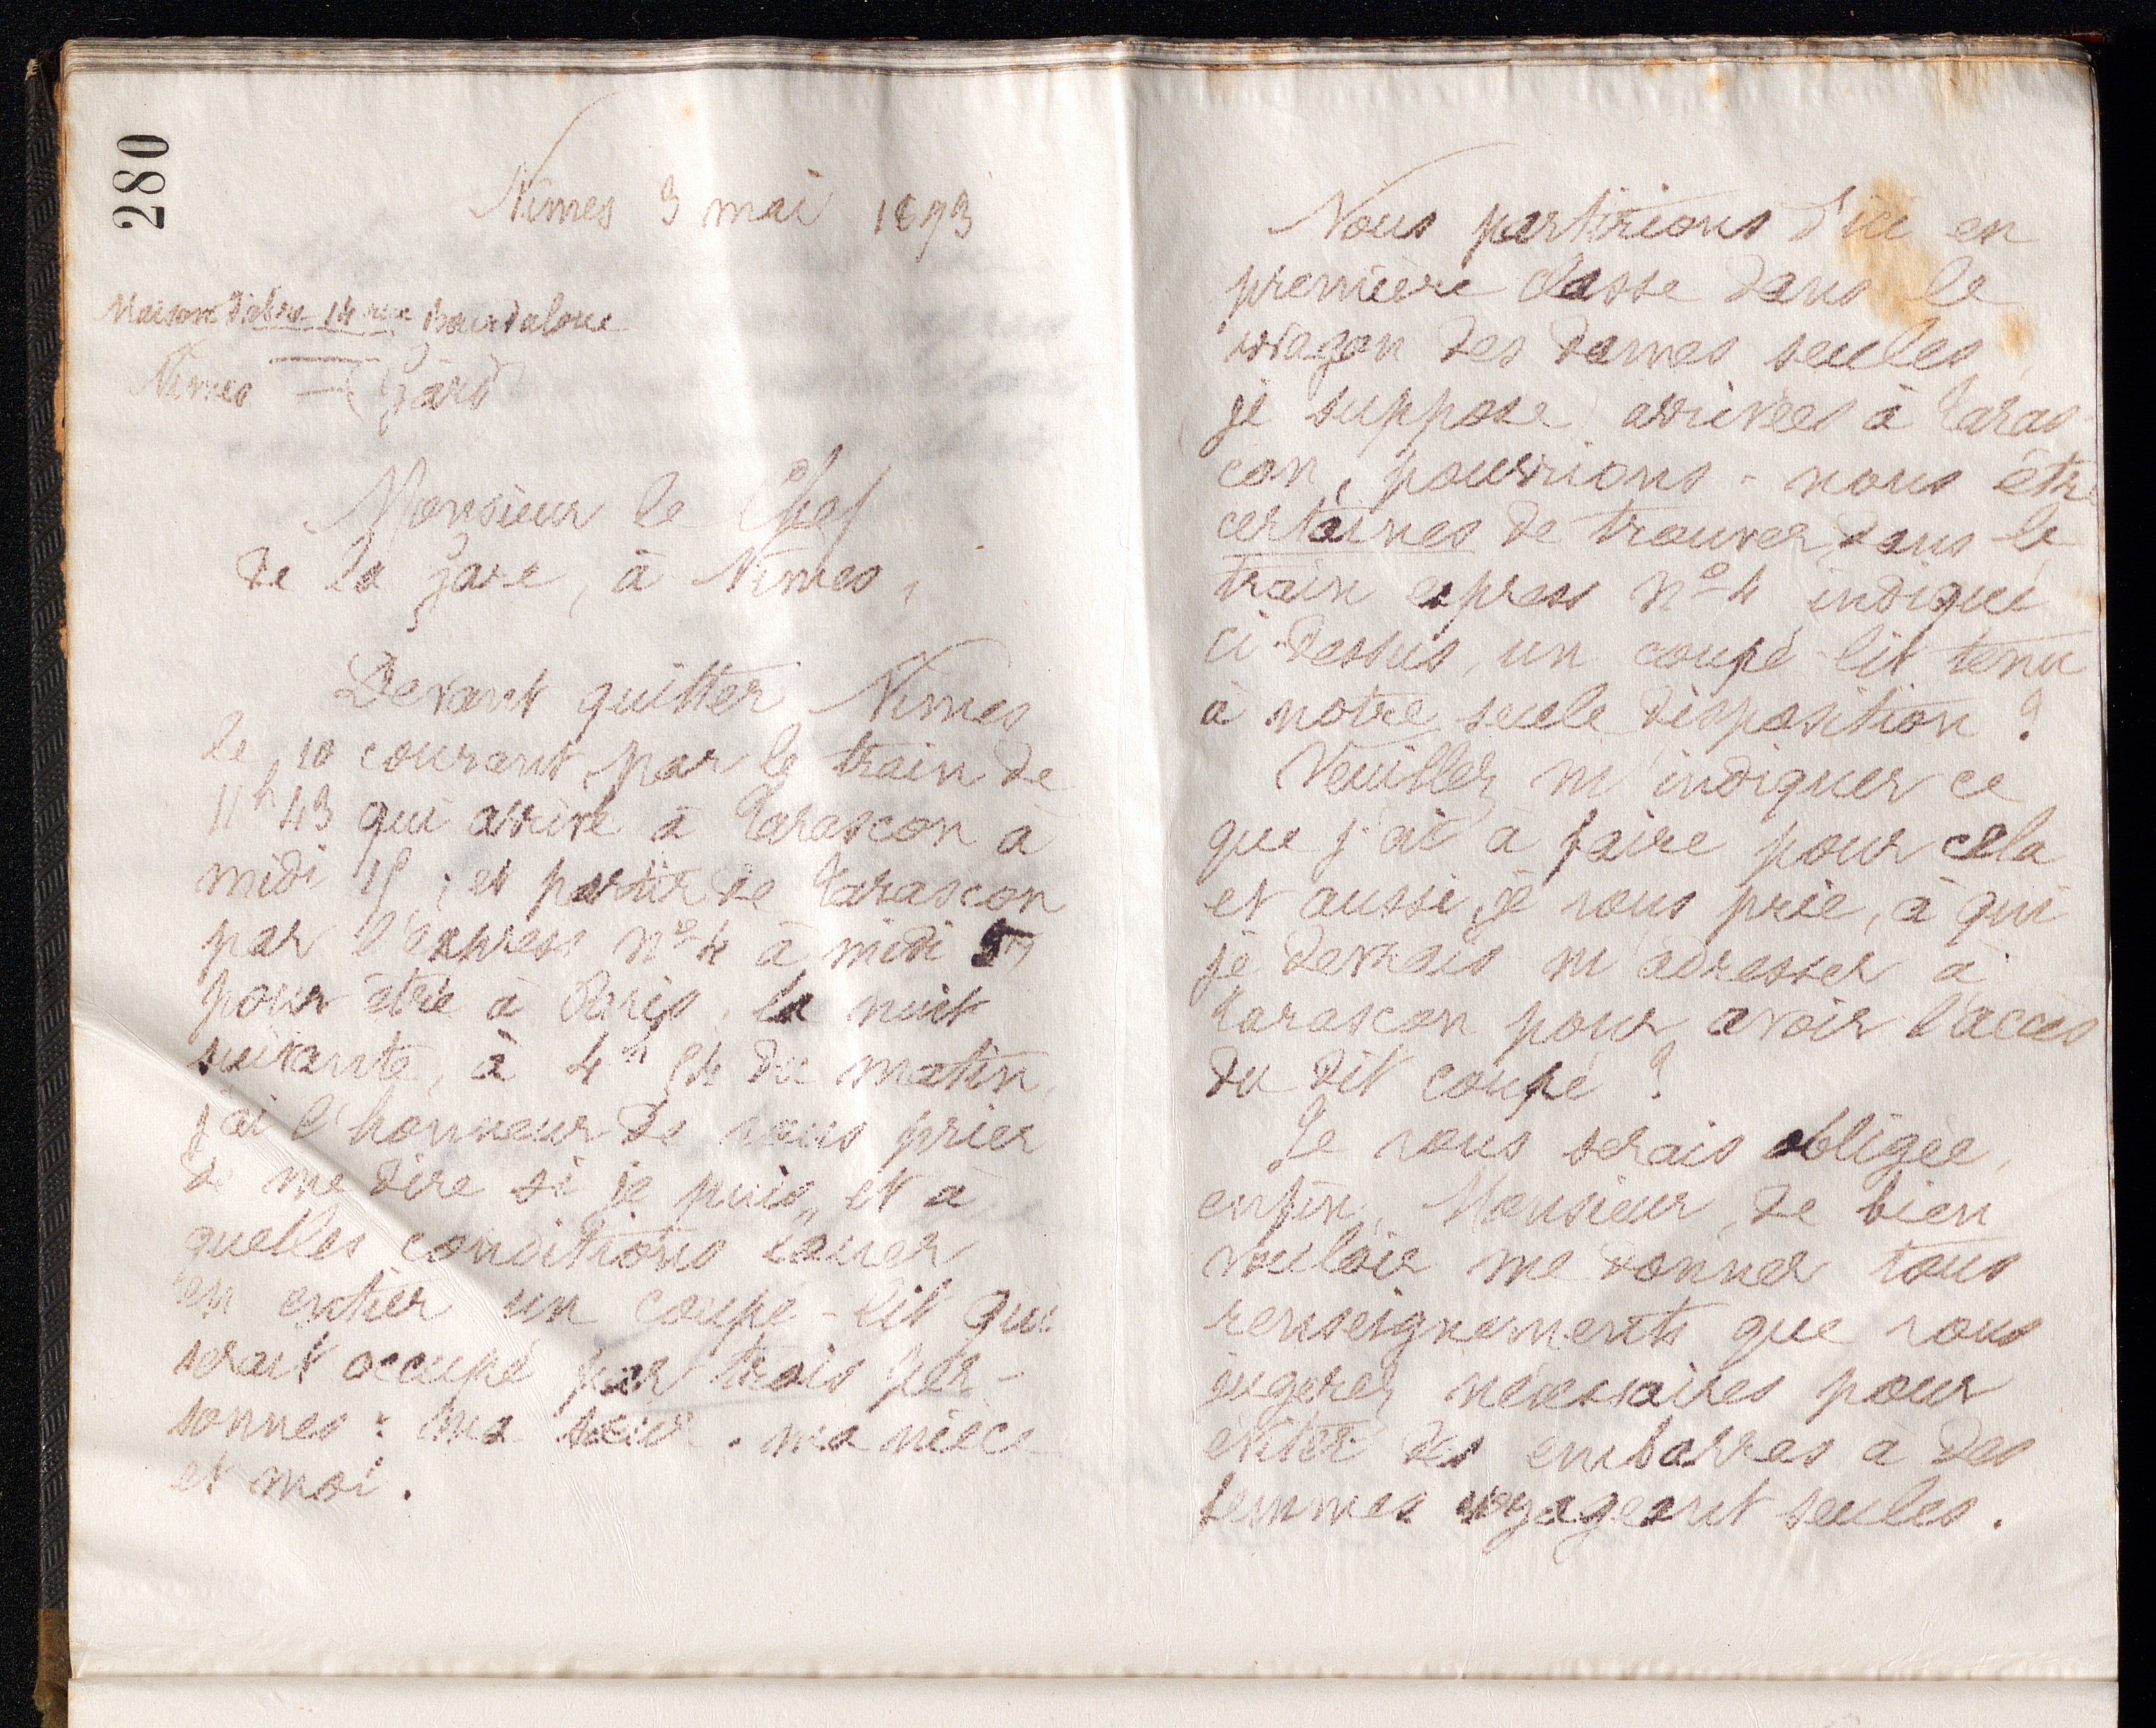 280
Nimes 3 mai 1893
Maison 14 rue Bourdaloue
Nimes — Gard
Monsieur le Chef
de la gare, à Nimes,
Devant quitter Nimes
le 10 courant par le train de
11h 43 qui arrive à Tarascon à
midi 15 ; et partir de Tarascon
par l'express no 4 à midi 57
pour être à Paris, la nuit
suivante, à 4h 54 du matin,
j'ai l'honneur de vous prier
de me dire si je puis, et à
quelles conditions louer
en entier un coupé-lit qui
serait occupé par trois per-
sonnes : ma sœur, ma nièce
et moi.
Nous partirions d'ici en
première classe dans le
wagon des dames seules,
je suppose, arrivées à Taras-
con, pourrions-nous être
certaines de trouver, dans le
train express no 4 indiqué
ci-dessus, un coupé-lit tenu
à notre seule disposition ?
Veuillez m'indiquer ce
que j'ai à faire pour cela
et aussi, je vous prie, à qui
je devrais m'adresser à
Tarascon pour avoir l'accès
du dit coupé ?
Je vous serais obligée,
enfin, Monsieur, de bien
vouloir me donner tous
renseignements que vous
jugerez nécessaires pour
éviter des embarras à des
femmes voyageant seules.